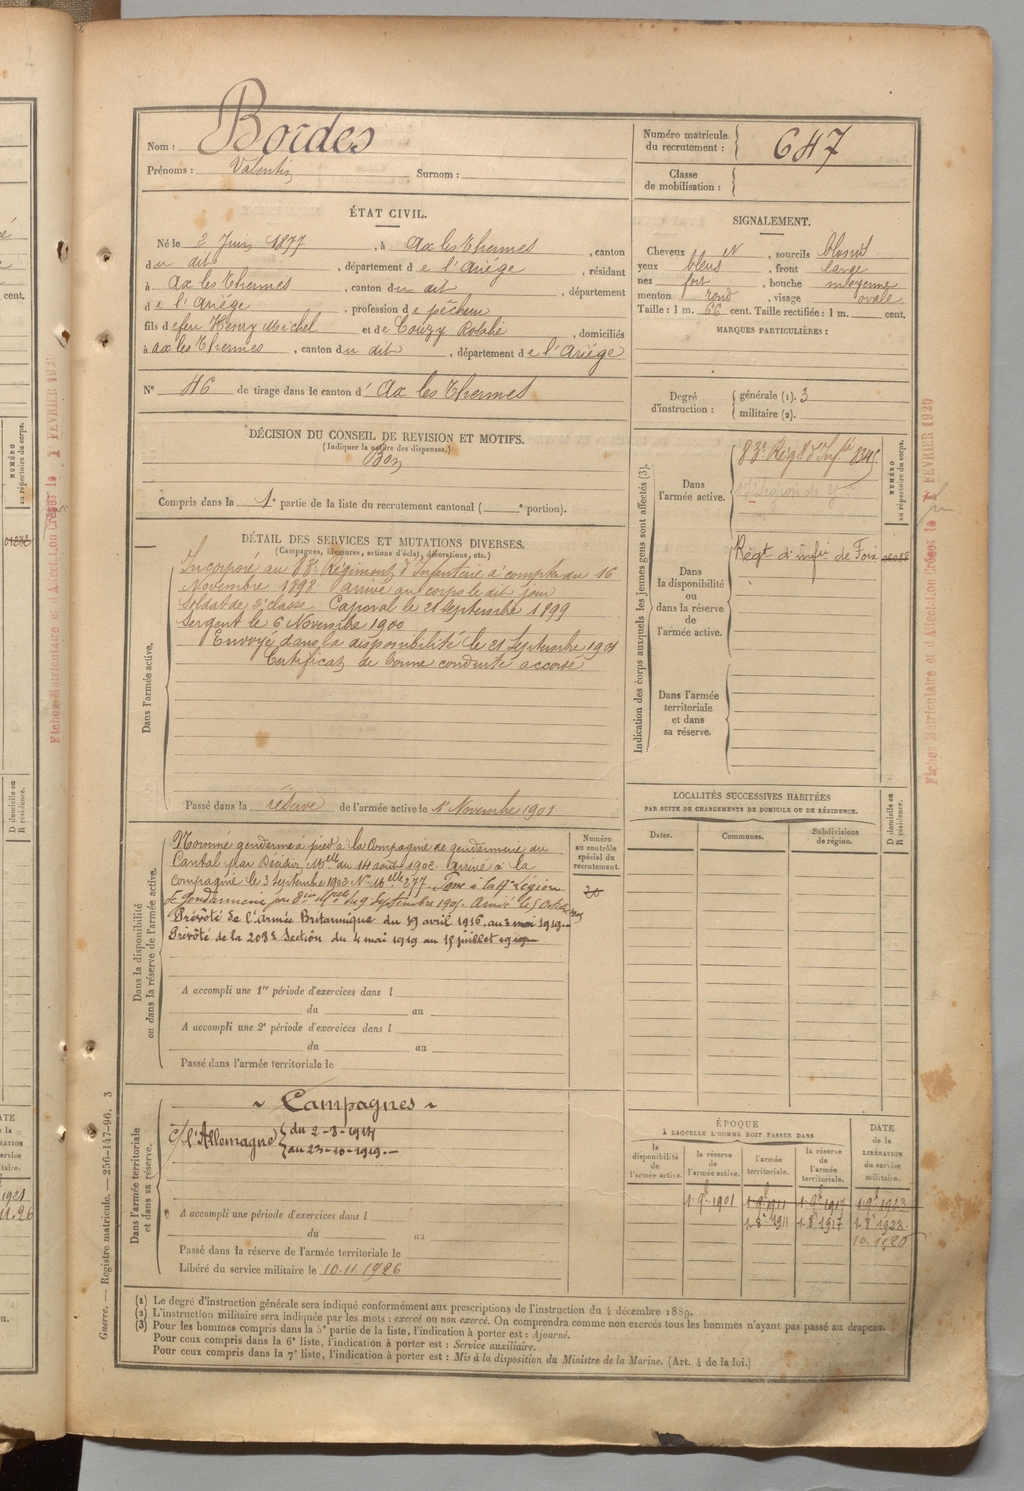 Nom : Bordes
Prénoms : Valentin Surnom :
Numéro matricule du recrutement : 647
Classe de mobilisation :
ÉTAT CIVIL.
Né le 2 Juin 1877, à Ax les Thermes, canton
du dit, département de l'Ariége, résidant
à Ax les Thermes, canton du dit, département
de l'Ariége, profession de pêcheur
fils de feu Henry Michel et de Couzy Rosalie, domiciliés
à Ax les Thermes, canton du dit, département de l'Ariége
N° 46 de tirage dans le canton d'Ax les Thermes
SIGNALEMENT.
Cheveux N, sourcils blonds
yeux bleus, front large
nez fort, bouche moyenne
menton rond, visage ovale
Taille : 1 m. 66 cent. Taille rectifiée : 1 m. cent.
MARQUES PARTICULIÈRES :
Degré d'instruction : générale (1). 3
militaire (2).
DÉCISION DU CONSEIL DE REVISION ET MOTIFS.
(Indiquer la nature des dispenses.)
Bon
Compris dans la 1e partie de la liste du recrutement cantonal ( e portion).
DÉTAIL DES SERVICES ET MUTATIONS DIVERSES.
(Campagnes, blessures, actions d'éclat, décorations, etc.)
Dans l'armée active.
Incorporé au 83e Régiment d'Infanterie à compter du 16
Novembre 1898 arrivé au corps le dit jour
Soldat de 2e classe Caporal le 21 Septembre 1899
Sergent le 6 Novembre 1900
Envoyé dans la disponibilité le 21 Septembre 1901
Certificat de bonne conduite accordé
Passé dans la réserve de l'armée active le 1r Novembre 1901
Indication des corps auxquels les jeunes gens sont affectés (3).
NUMÉRO au répertoire du corps.
Dans l'armée active.
83e Régt d'Infie
Dans la disponibilité ou dans la réserve de l'armée active.
Régt d'infie de Foix
Dans l'armée territoriale et dans sa réserve.
Fiches Matriculaire et d'Affectation Créées le FEVRIER 1920
LOCALITÉS SUCCESSIVES HABITÉES
PAR SUITE DE CHANGEMENTS DE DOMICILE OU DE RÉSIDENCE.
Dates. Communes. Subdivisions de région.
D domicile ou R résidence.
Dans la disponibilité ou dans la réserve de l'armée active.
Numéro au contrôle spécial du recrutement.
20
Nommé gendarme à pied à la Compagnie de gendarmerie du
Cantal par Décision Melle du 14 août 1902. Arrivé à la
compagnie le 3 Septembre 1902 No Mlle 277. Passé à la 17e région
de Gendarmerie par du 9 Septembre 190 Arrivé le 5 Octobre
Prévôté de l'armée Britannique du 19 avril 1916 au 3 mai 1919.
Prévôté de la 208e Section du 4 mai 1919 au 15 juillet 1919
A accompli une 1re période d'exercices dans l
du au
A accompli une 2e période d'exercices dans l
du au
Passé dans l'armée territoriale le
Dans l'armée territoriale et dans sa réserve.
~ Campagnes ~
c/ l'Allemagne du 2-8-1914
au 23-10-1919.
A accompli une période d'exercices dans l
du au
Passé dans la réserve de l'armée territoriale le
Libéré du service militaire le 10.11.1926
ÉPOQUE
À LAQUELLE L'HOMME DOIT PASSER DANS
la disponibilité de l'armée active.
la réserve de l'armée active.
l'armée territoriale.
la réserve de l'armée territoriale.
DATE de la LIBÉRATION du service militaire.
1.9bre.1901 1.9bre 1911 1.9bre 1917 1.9bre 1923
1.8bre 1911 1.8bre 1917 1.8bre 1923
10.11.26
(1) Le degré d'instruction générale sera indiqué conformément aux prescriptions de l'instruction du 4 décembre 1889.
(2) L'instruction militaire sera indiquée par les mots : exercé ou non exercé. On comprendra comme non exercés tous les hommes n'ayant pas passé au drapeau.
(3) Pour les hommes compris dans la 5e partie de la liste, l'indication à porter est : Ajourné.
Pour ceux compris dans la 6e liste, l'indication à porter est : Service auxiliaire.
Pour ceux compris dans la 7e liste, l'indication à porter est : Mis à la disposition du Ministre de la Marine. (Art. 4 de la loi.)
Guerre. — Registre matricule. — 256-147-96. 3